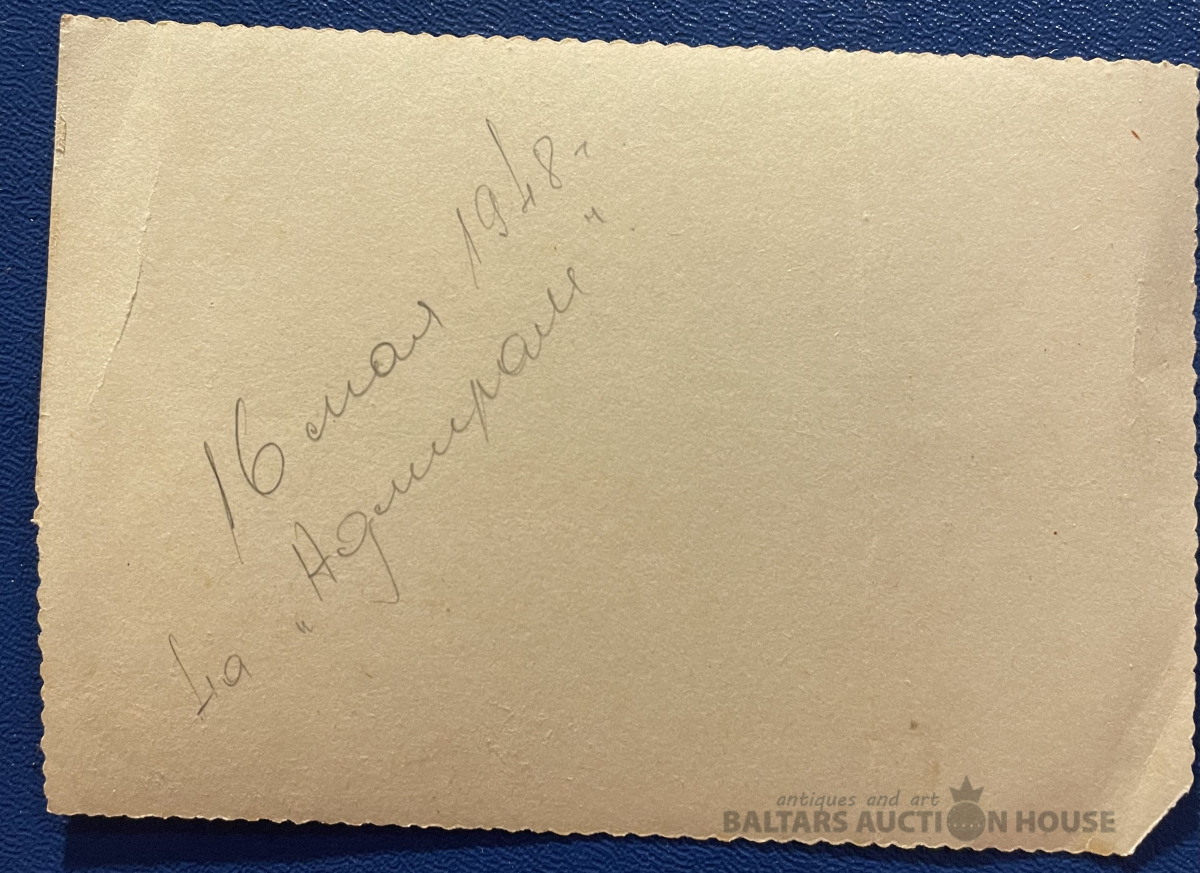 16 мая 1948 г
4а "Адмирал"
antiques and art
BALTARS AUCTION HOUSE